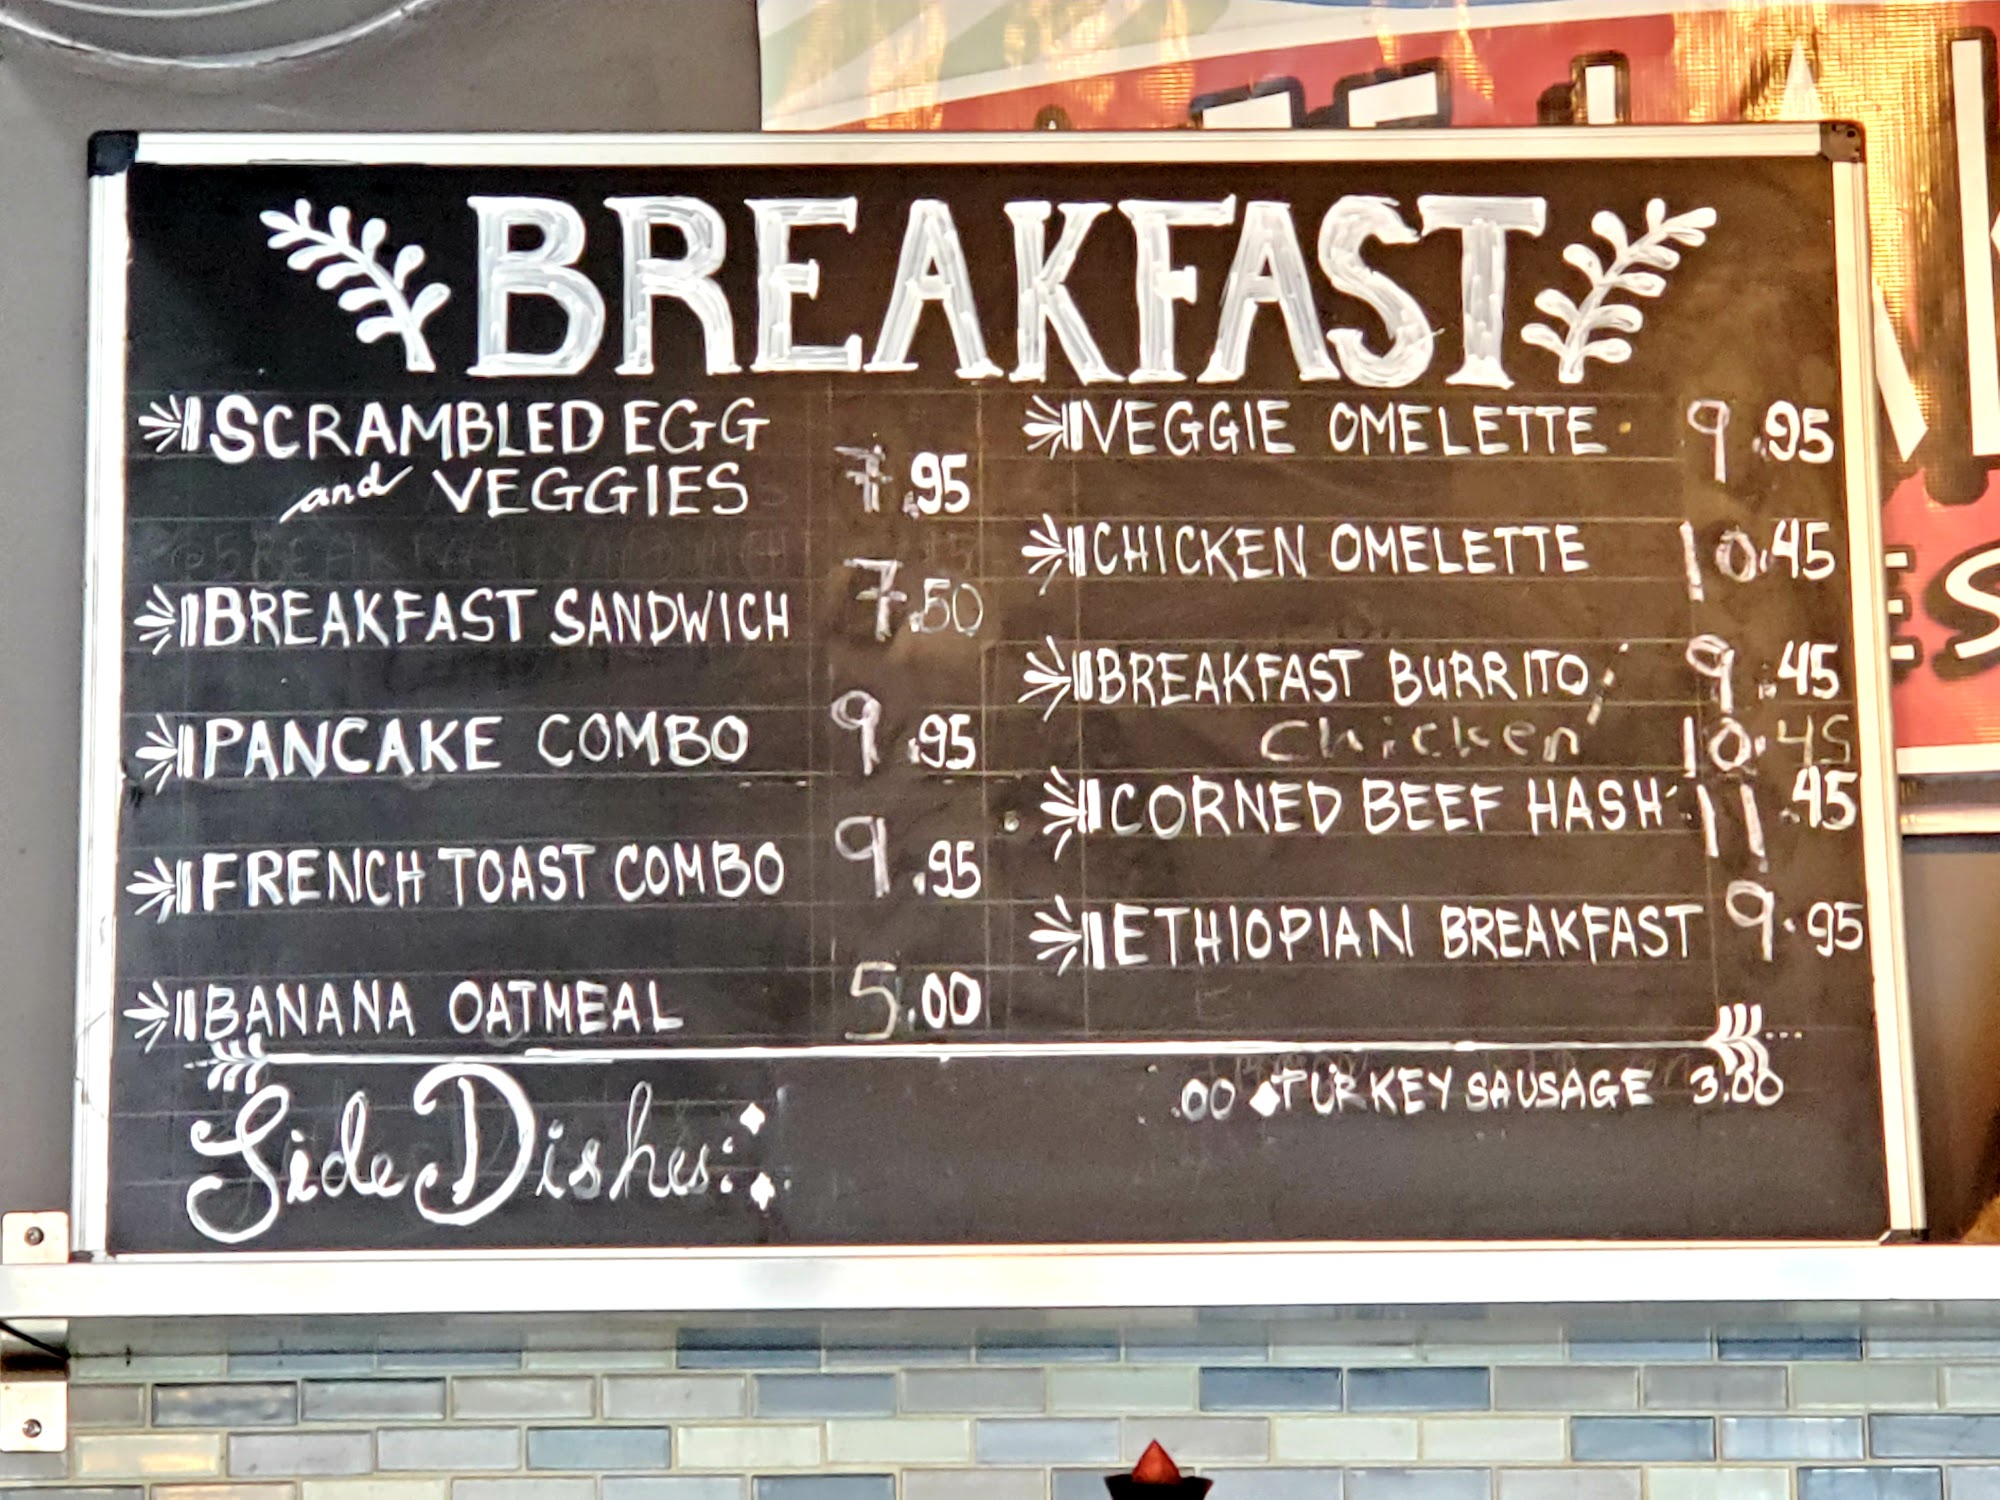 BREAKFAST
SCRAMBLED EGG
and VEGGIES 7.95
BREAKFAST SANDWICH 7.50
PANCAKE COMBO 9.95
FRENCH TOAST COMBO 9.95
BANANA OATMEAL 5.00
VEGGIE OMELETTE 9.95
CHICKEN OMELETTE 10.45
BREAKFAST BURRITO 9.45
Chicken 10.45
CORNED BEEF HASH 11.45
ETHIOPIAN BREAKFAST 9.95
Side Dishes:
.00 TURKEY SAUSAGE 3.00